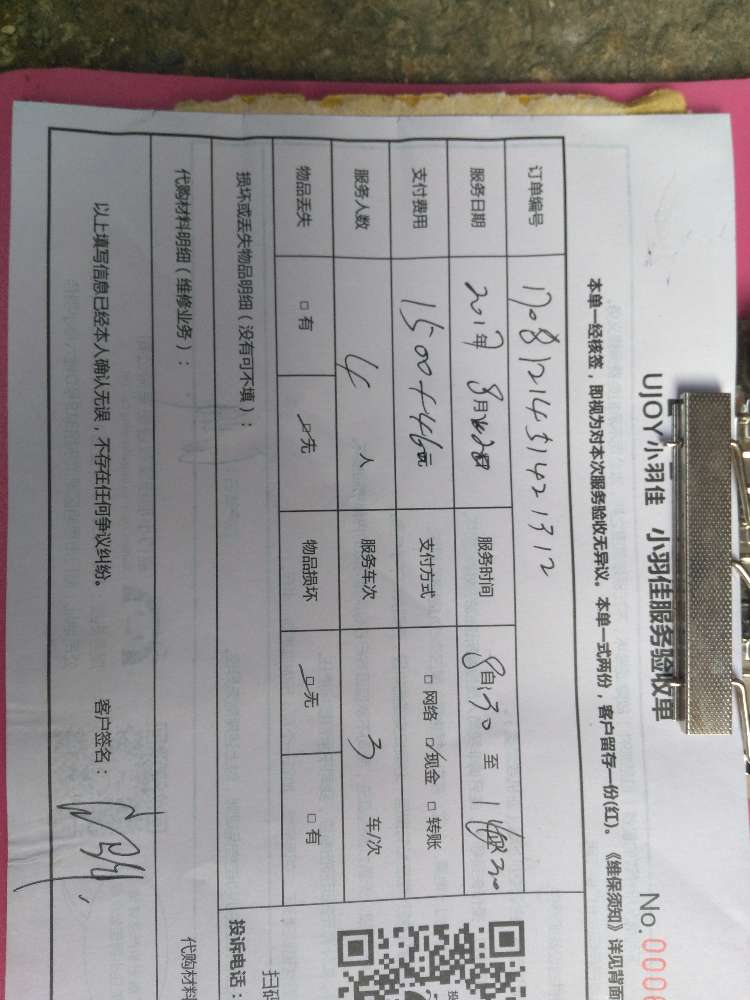 UJOY小羽佳 小羽佳服务验收单
No.000
本单一经核签，即视为对本次服务验收无异议。本单一式两份，客户留存一份(红)。《维保须知》详见背面
订单编号 170812145142 1312
服务日期 2017年 8月 日 服务时间 8:30 至 30
支付费用 1500+446元 支付方式 □网络 ☑现金 □转账
服务人数 4 人 服务车次 3 车/次
物品丢失 □有 ☑无 物品损坏 ☑无 □有
损坏或丢失物品明细（没有可不填）：
投诉电话：
扫码
代购材料明细（维修业务）：
代购材料
以上填写信息已经本人确认无误，不存在任何争议纠纷。 客户签名：